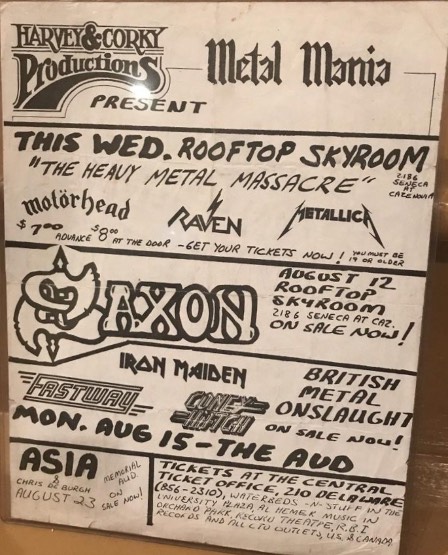 HARVEY & CORKY
Productions
PRESENT
Metal Mania
THIS WED. ROOFTOP SKYROOM
"THE HEAVY METAL MASSACRE"
2186
SENECA
AT
CAZENOVIA
motörhead
RAVEN
METALLICA
$7.00 ADVANCE $8.00 AT THE DOOR - GET YOUR TICKETS NOW!
YOU MUST BE
19 OR OLDER
SAXON
AUGUST 12
ROOFTOP
SKYROOM
2186 SENECA AT CAZ.
ON SALE NOW!
IRON MAIDEN
FASTWAY
CONEY HATCH
BRITISH
METAL
ONSLAUGHT
ON SALE NOW!
MON. AUG 15 - THE AUD
ASIA
CHRIS DE BURGH
AUGUST 23
MEMORIAL
AUD
ON
SALE NOW!
TICKETS AT THE CENTRAL
TICKET OFFICE, 210 DELAWARE
(856-2310), WATERBEDS-N-STUFF IN THE
UNIVERSITY PLAZA, AL HEMER MUSIC IN
ORCHARD PARK, THEATRE, R.B.I
RECORDS AND ALL CTO OUTLETS, U.S. & CANADA